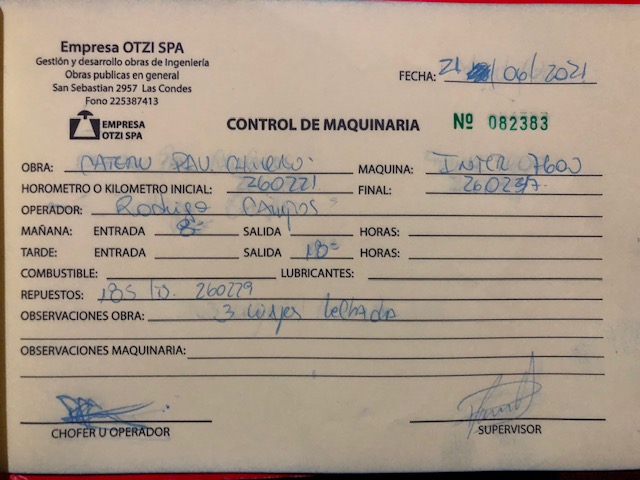 Empresa OTZI SPA
Gestión y desarrollo obras de Ingeniería
Obras publicas en general
San Sebastian 2957 Las Condes
Fono 225387413
FECHA: 21 / 06 / 2021
EMPRESA
OTZI SPA
CONTROL DE MAQUINARIA
Nº 082383
OBRA: MAQUINA: INTER 7600
HOROMETRO O KILOMETRO INICIAL: 260221 FINAL: 260237
OPERADOR: Rodrigo Campos
MAÑANA: ENTRADA 8 SALIDA HORAS:
TARDE: ENTRADA SALIDA 18 HORAS:
COMBUSTIBLE: LUBRICANTES:
REPUESTOS: 185 260229
OBSERVACIONES OBRA: 3 viajes
OBSERVACIONES MAQUINARIA:
CHOFER U OPERADOR
SUPERVISOR